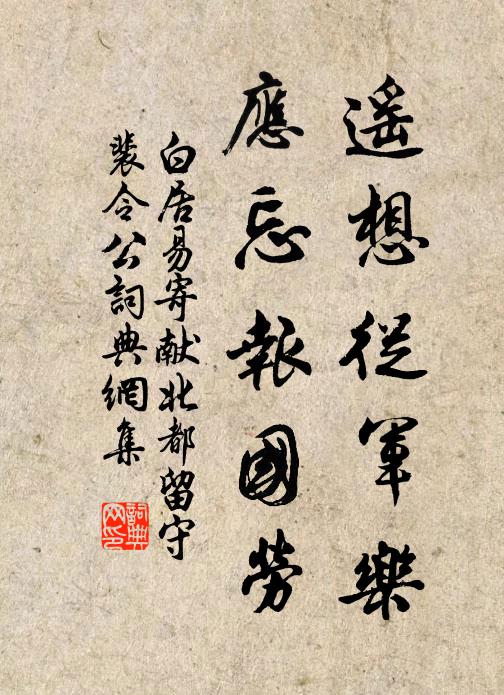 遥想從軍樂
應忘報國勞
白居易寄献北都留守
裴令公詞典網集
詞典
网印